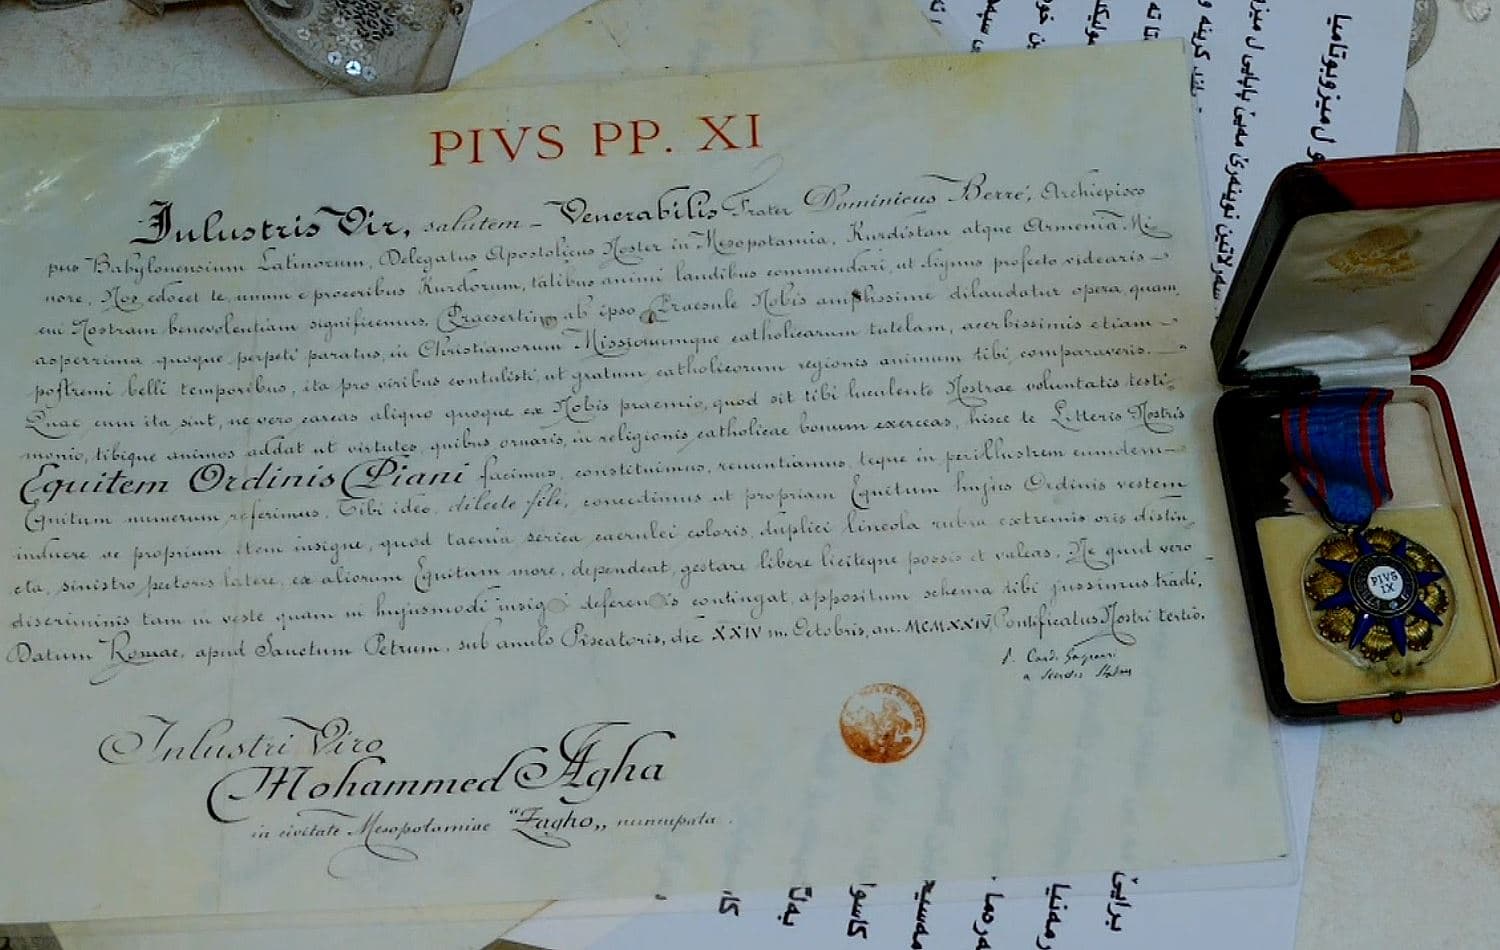 PIVS PP. XI
Inlustris Vir, salutem – Venerabilis Frater Dominicus Berré, Archiepisco
pus Babylonensium Latinorum, Delegatus Apostolicus Noster in Mesopotamia, Kurdistan atque Armenia Mi
nore, Nos edocet te, unum e proceribus Kurdorum, talibus animi laudibus commendari, ut dignus profecto videaris
cui Nostram benevolentiam significemus. Praesertim ab ipso Praesule Nobis amplissime dilaudatur opera, quam,
asperrima quoque perpeti paratus, in Christianorum Missionumque catholicarum tutelam, acerbissimis etiam
postremi belli temporibus, ita pro viribus contulisti, ut gratum catholicorum regionis animum tibi comparaveris.
Quae cum ita sint, ne vero careas aliquo quoque ex Nobis praemio, quod sit tibi luculento Nostrae voluntatis testi
monio, tibique animos addat ut virtutes, quibus ornaris, in religionis catholicae bonum exerceas, hisce te Litteris Nostris
Equitem Ordinis Piani facimus, constituimus, renuntiamus, teque in perillustrem eumdem
Equitum numerum referimus. Tibi ideo, dilecte fili, concedimus ut propriam Equitum hujus Ordinis vestem
induere ac proprium item insigne, quod taenia serica caerulei coloris, duplici lineola rubra extremis oris distin
cta, sinistro pectoris latere, ex aliorum Equitum more, dependeat, gestare libere liciteque possis et valeas. Ne quid vero
discriminis tam in veste quam in hujusmodi deferendis contingat, appositum schema tibi jussimus tradi.
Datum Romae, apud Sanctum Petrum, sub anulo Piscatoris, die XXIV m. Octobris, an. MCMXXIV, Pontificatus Nostri tertio.
P. Card. Gasparri
a Secretis Status
Inlustri Viro
Mohammed Agha
in civitate Mesopotamiae "Zagho„ nuncupata.
PIVS
IX
ل میزوپوتامیا
کاسو
برایێ